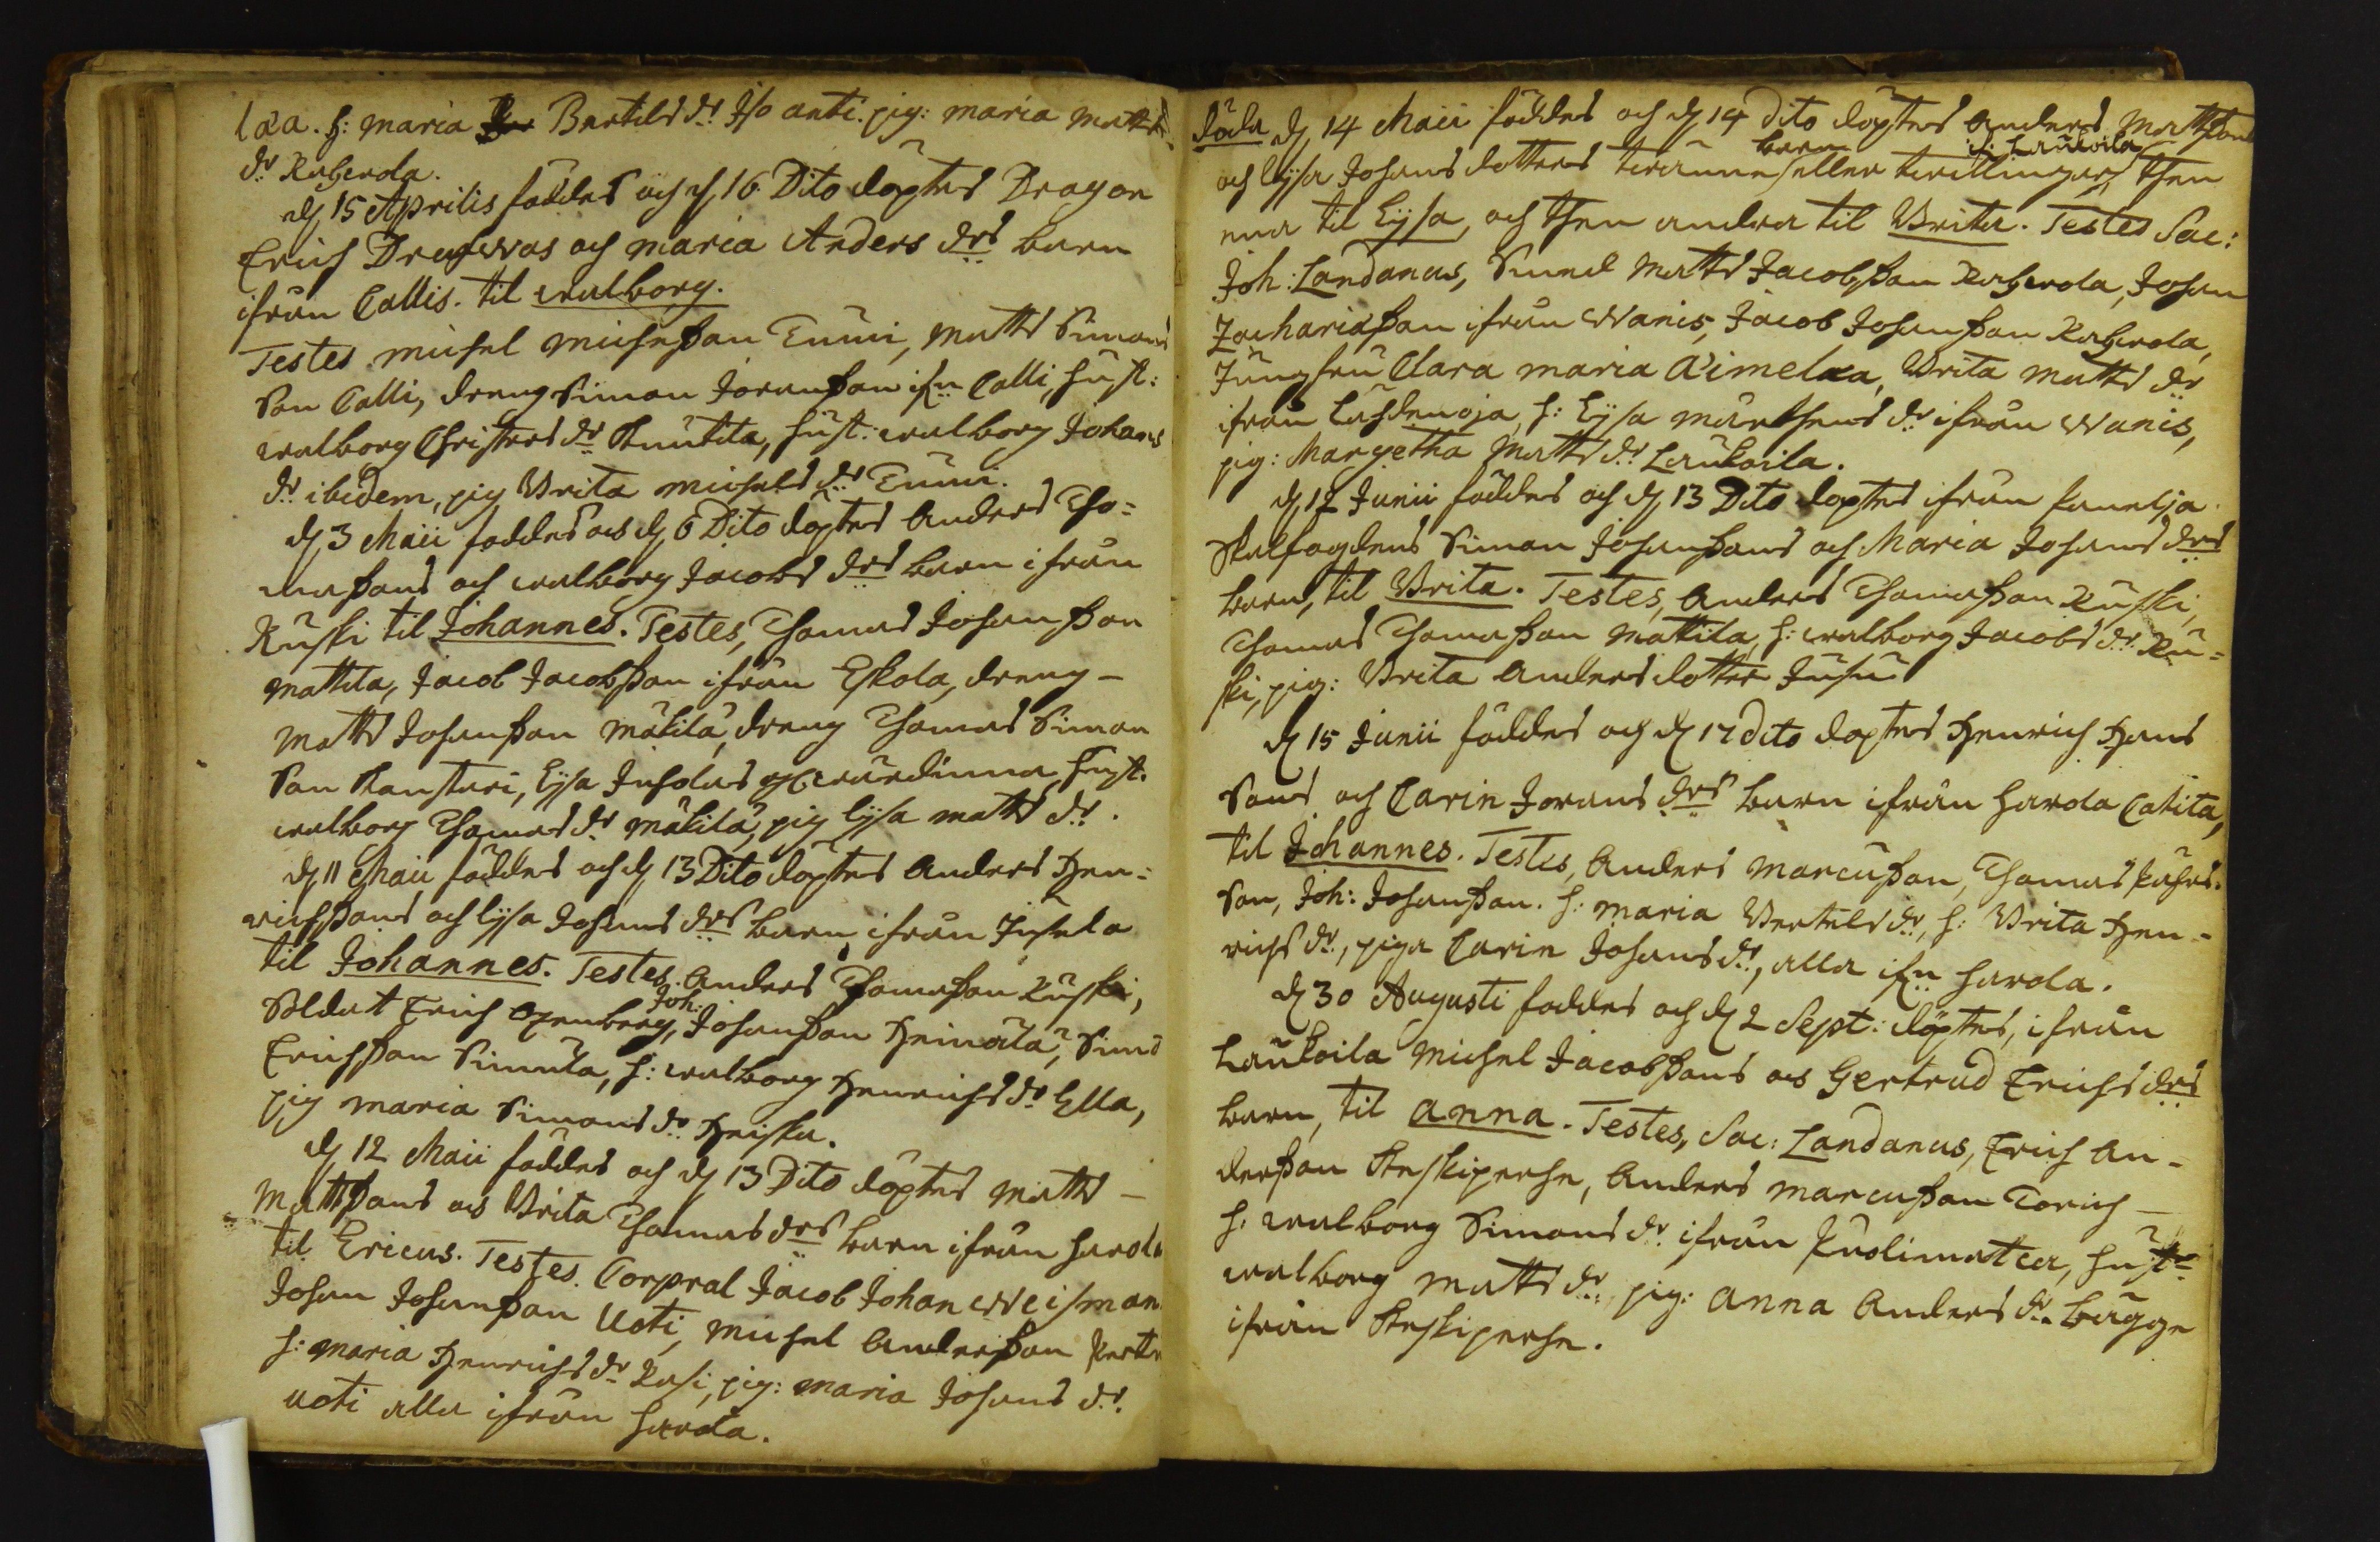 laa. h: maria Bertils dr Iso anti. pig: maria Matts
dr Raherola.
d 15 Aprilis föddes och d 16 Dito döptes Dragon
Erich Dragwas och maria Anders drs barn
ifrån Callis. til walborg.
Testes michel michelsson Eunui, Matts Simons
son Calli, dreng Simon Joransson ifrn Calli, hust:
walborg Christers dr Knutila, hust: walborg Johans
dr ibidem, pig Brita michels dr Eunui.
d 3 Maii föddes och d 6 Dito döptes Anders Tho-
massons och walborg Jacobs drs barn ifrån
Kuski til Johannes. Testes, Thomas Johansson
Mattila, Jacob Jacobsson ifrån Eskola, dreng
Matts Johansson Mäkilä, dreng Thomas Simon
son, Lisa, hust.
walborg Thomas dr Mäkilä, pig lisa matts dr.
d 11 Maii föddes och d 13 Dito döptes Anders Hen-
richssons och lisa Johans drs barn ifrån Jusela
til Johannes. Testes. Anders Thomasson Kuski,
Joh:
Soldat Erich Openberg, Johansson Heimola, Simo
Erichsson Simula, h: walborg Henrichs dr Ella,
pig maria Simons dr Heiska.
d 12 Maii föddes och d 13 Dito döptes Matts
Mattssons och Brita Thomas drs barn ifrån harola
til Ericus. Testes. Corporal Jacob Johan Weisman.
Johan Johansson Uoti, Michel Andersson Pertte
h: maria Henrichs dr Kasi, pig: maria Johans dr.
uoti alla ifrån harola.
döda d 14 Maii föddes och d 14 Dito döptes Anders Mattssons
barn if: Laukoila
och lisa Johans dotters twänne eller twillingar, then
ena til Lisa, och then andra til Brita. Testes Sac:
Joh: Landanus, Matts Jacobsson Raherola, Johan
Zachariæsson ifrån Wanis, Jacob Johansson Raherola,
Jungfru Clara maria Aimelaa, Brita Matts dr
ifrån Lahdenoja, h: Lisa Mårthens dr ifrån Wanis,
pig: Margetha Matts dr Laukoila.
d 12 Junii föddes och d 13 Dito döptes ifrån Panelja
Simon Johanssons och Maria Johans drs
barn, til Brita. Testes, Anders Thomasson Kuski,
Thomas Thomasson Mattila, h: walborg Jacobs dr Ku-
ski, pig: Brita Anders dotter Jusu
d 15 Junii föddes och d 17 dito döptes Henrich Hans
sons och Carin Jorans drs barn ifrån harola Catila,
til Johannes. Testes, Anders Marcusson, Thomas
son, Joh: Johansson. h: maria Bertils dr, h: Brita Hen-
richs dr, piga Carin Johans dr, alla ifrn harola.
d 30 Augusti föddes och d 2 Sept: döptes, ifrån
Laukoila Michel Jacobssons och Gertrud Erichs drs
barn, til Anna. Testes, Sac: Landanus, Erich An-
dersson Keskiperhe, Anders Marcusson Torich
h: walborg Simons dr ifrån Puolimatca, hust:
walborg Matts dr, pig: Anna Anders dr Bagge
ifrån Keskiperhe.